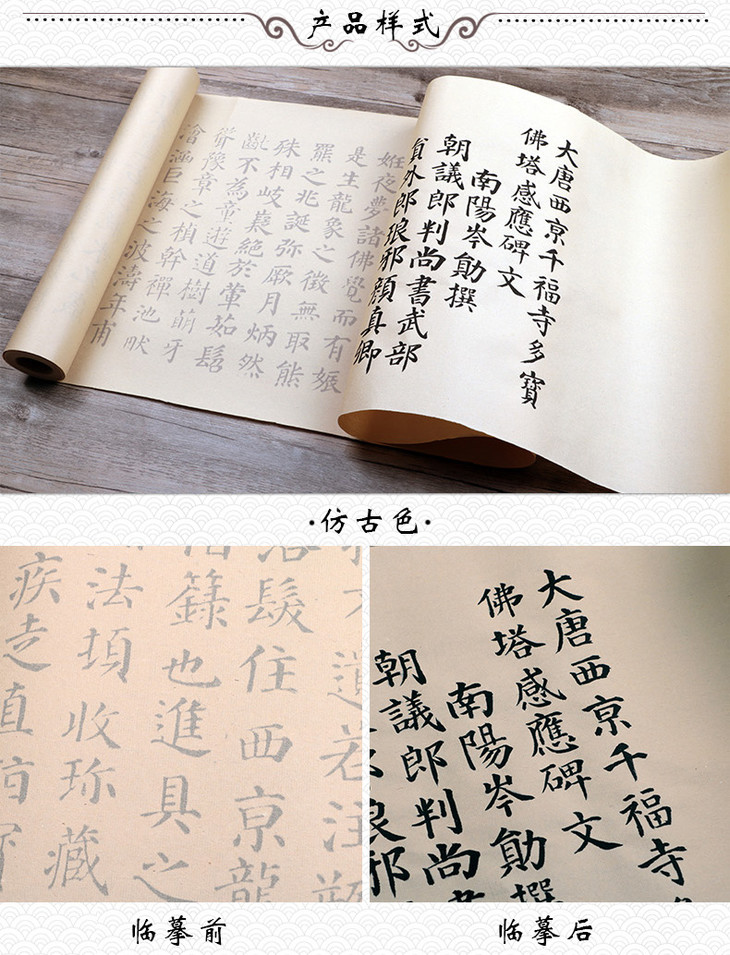 产品样式
大唐西京千福寺多寶
佛塔感應碑文
南陽岑勛撰
朝議郎判尚書武部
員外郎琅邪顏真卿
姙夜夢諸佛覺而有娠
是生龍象之徵無取熊
羆之兆誕弥厥月炳然
殊相岐嶷絕於葷茹髫
齔不為童遊道樹萌牙
聳豫章之楨幹禪池畎
澮涵巨海之波濤年甫
·仿古色·
遺若注
髮住西京龍
籙也進具之
法頂收珎藏
疾走直
大唐西京千福寺
佛塔感應碑文
南陽岑勛撰
朝議郎判尚
琅邪
临摹前
临摹后